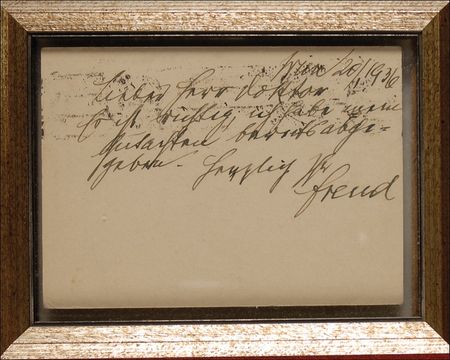 Wien 20/1936
Lieber Herr Doktor
Es ist richtig, ich habe mein
Gutachten bereits abge-
geben. Herzlich Ihr
Freud